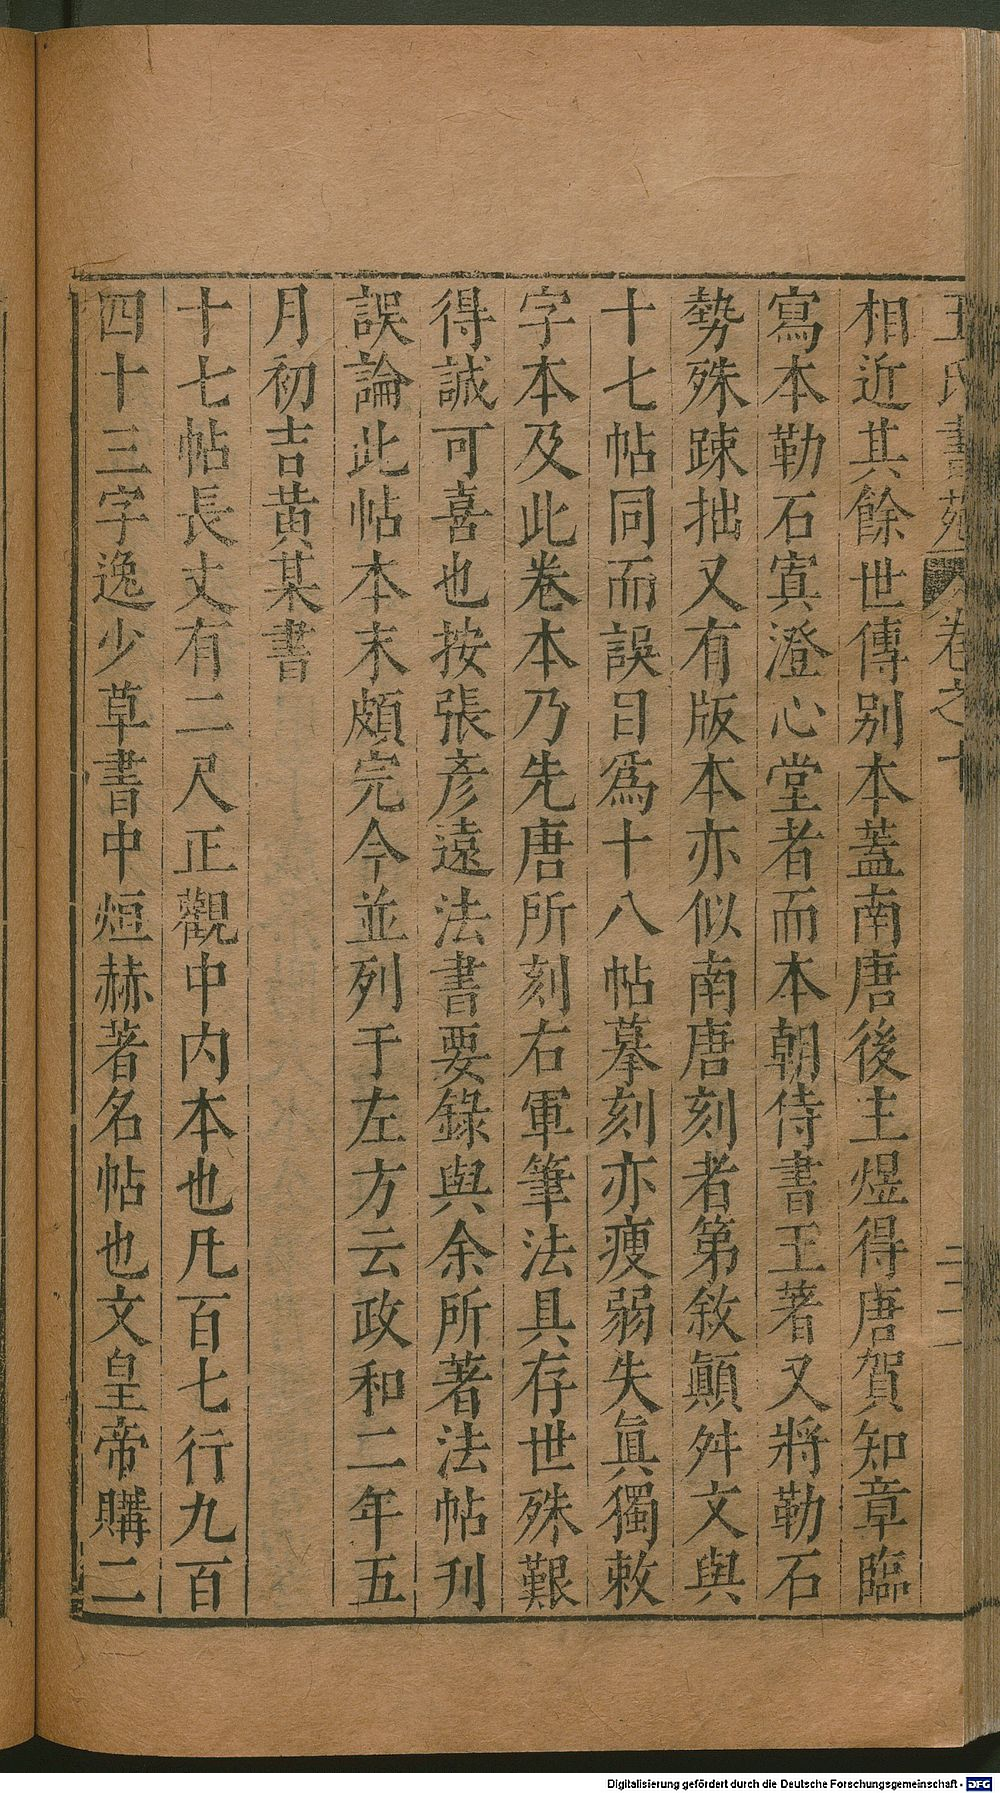 王氏書苑 卷之十
相近其餘世傳别本蓋南唐後主煜得唐賀知章臨
寫本勒石寘澄心堂者而本朝侍書王著又將勒石
勢殊踈拙又有版本亦似南唐刻者第敘顛舛文與
十七帖同而誤目爲十八帖摹刻亦瘦弱失眞獨敕
字本及此卷本乃先唐所刻右軍筆法具存世殊艱
得誠可喜也按張彥遠法書要錄與余所著法帖刋
誤論此帖本末頗完今並列于左方云政和二年五
月初吉黄某書
十七帖長丈有二尺正觀中内本也凡百七行九百
四十三字逸少草書中烜赫著名帖也文皇帝購二
Digitalisierung gefördert durch die Deutsche Forschungsgemeinschaft - DFG